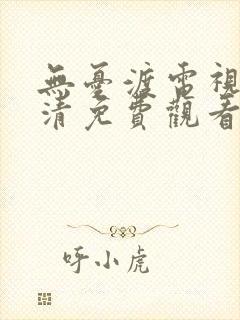 無憂渡電視
清免費觀看
呼小虎